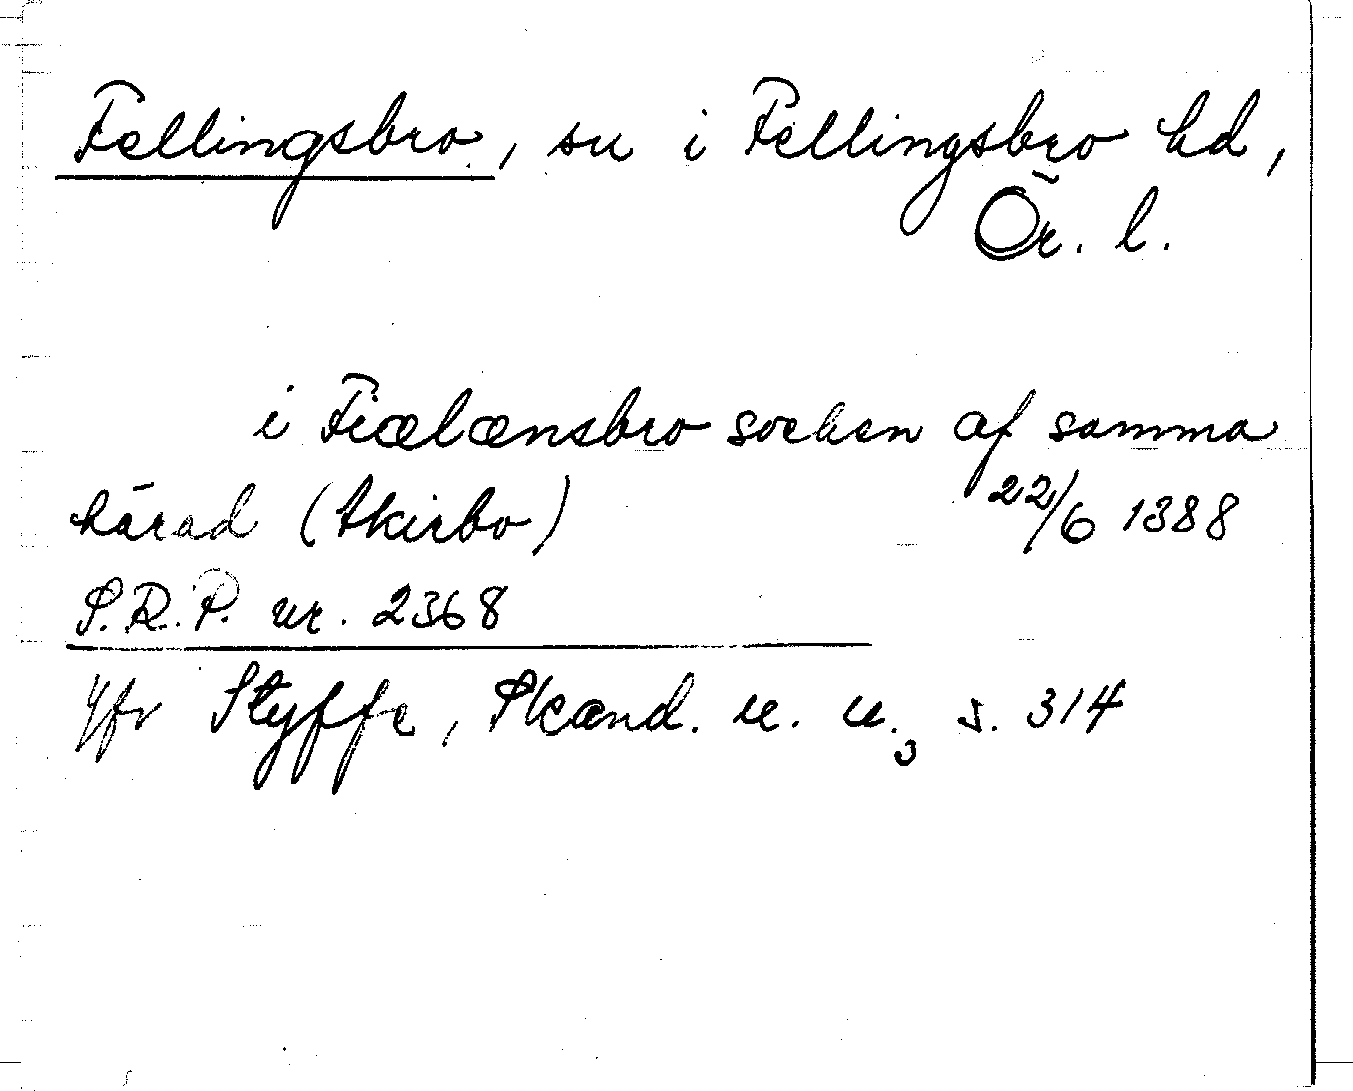 Fellingsbro, sn i Fellingsbro hd,
Ör. l.
i Fiælænsbro socken af samma
härad (Akirbo) 22/6 1388
S.R.P. nr. 2368
Jfr Styffe, Skand. u. u.3 s. 314